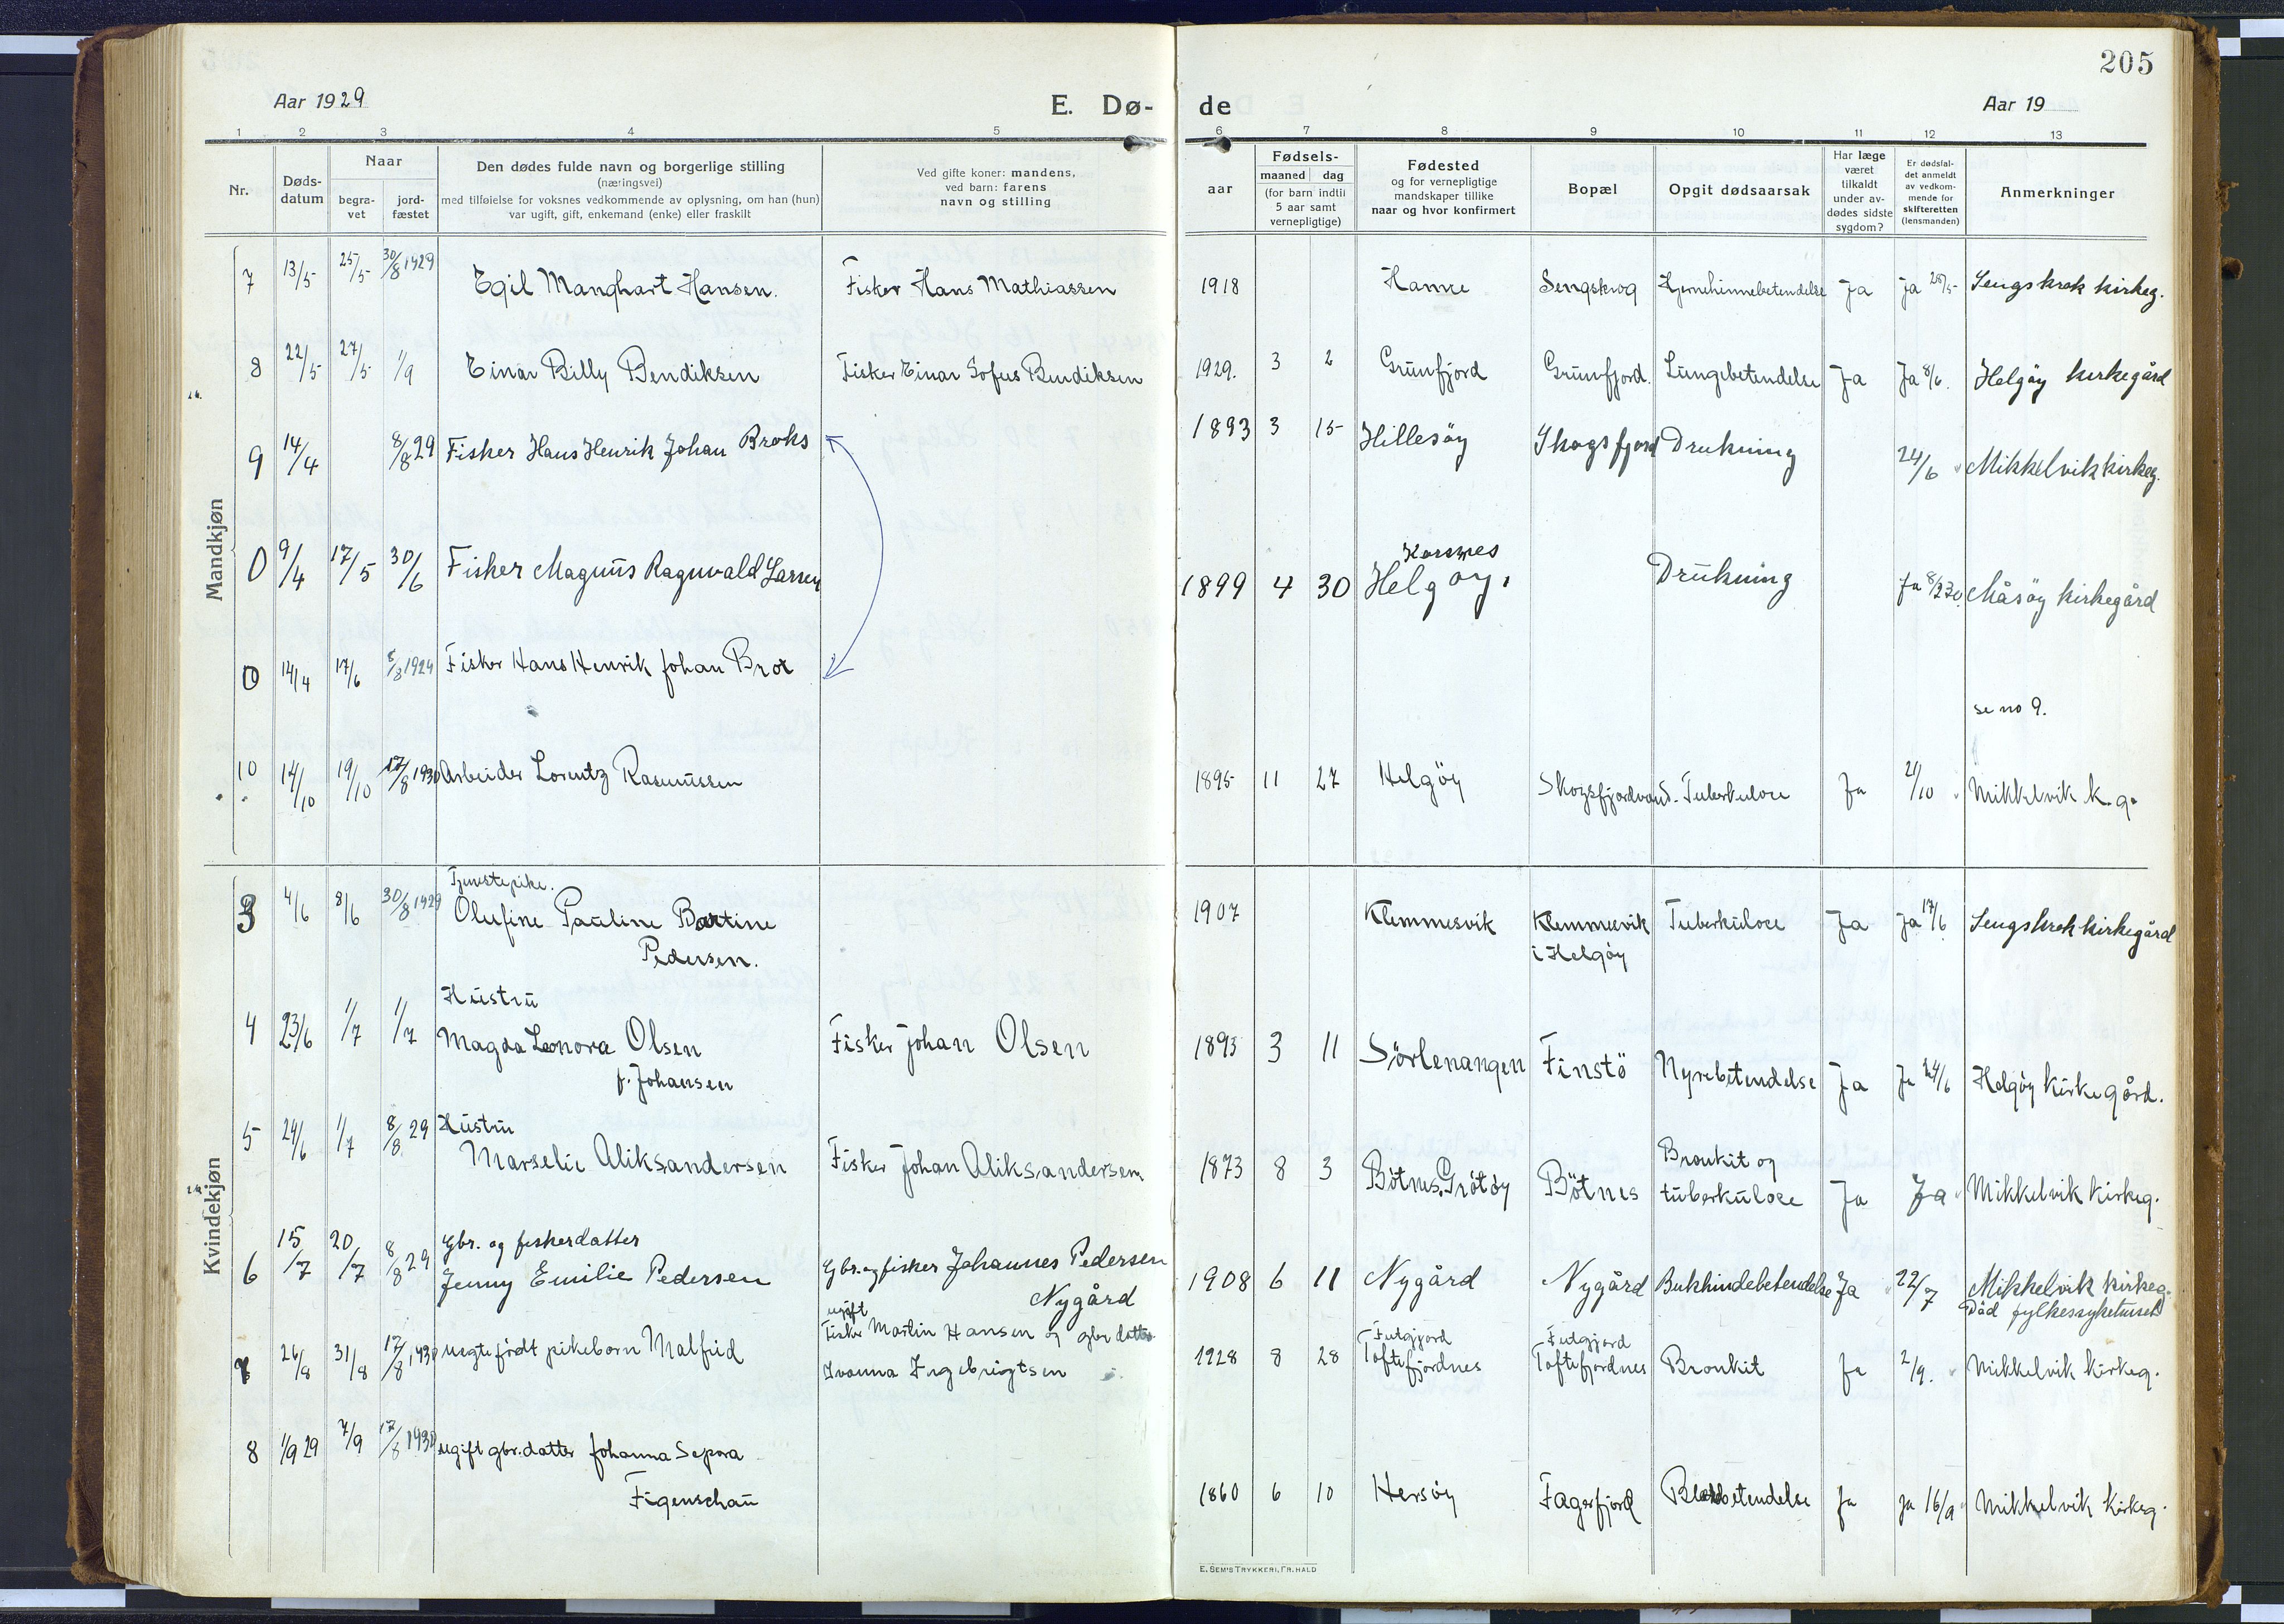 205
Aar 1929
E. Dø-
de
Aar 19
1 2 3 4 5 6 7 8 9 10 11 12 13
Nr.
Døds-
datum
Naar
begra-
vet
jord-
fæstet
Den dødes fulde navn og borgerlige stilling
(næringsvei)
med tilføielse for voksnes vedkommende av oplysning, om han (hun)
var ugift, gift, enkemand (enke) eller fraskilt
Ved gifte koner: mandens,
ved barn: farens
navn og stilling
aar
Fødsels-
maaned dag
(for barn indtil
5 aar samt
vernepligtige)
Fødested
og for vernepligtige
mandskaper tillike
naar og hvor konfirmert
Bopæl
Opgit dødsaarsak
Har læge
været
tilkaldt
under av-
dødes sidste
sygdom?
Er dødsfal-
det anmeldt
av vedkom-
mende for
skifteretten
(lensmanden)
Anmerkninger
Mandkjøn
7 13/5 25/5 30/8 1929 Egil Manghart Hansen. Fisker Hans Mathiassen 1918 Hamre Sengskrog Hjernehinnebetendelse Ja Ja 28/5 Sengskrok kirkeg.
8 22/5 27/5 1/9 Einar Billy Bendiksen Fisker Einar Sofus Bendiksen 1929. 3 2 Grunfjord Grunfjord. Lungebetendelse Ja Ja 8/6. Helgøy kirkegård
9 14/4 8/8 29 Fisker Hans Henrik Johan Broks 1893 3 15 Hillesøy Skogsfjord Drukning 24/6 Mikkelvik kirkeg.
Karsnes
0 9/4 17/5 30/6 Fisker Magnus Ragnvald Larsen 1899 4 30 Helgøy. Drukning Ja Måsøy kirkegård
0 14/4 17/6 8/8 1929 Fisker Hans Henrik Johan Brox
se no 9.
10 14/10 19/10 17/8 1930 Arbeider Lorentz Rasmussen 1895 11 27 Helgøy Skogsfjordvand. Tuberkulose Ja 21/10 Mikkelvik k.g.
Kvindekjøn
Tjenestepike.
3 4/6 8/6 30/8 1929 Olufine Pauline Bertine 1907 Klemmesvik Klemmesvik Tuberkulose Ja Ja 17/6 Sengskrok kirkegård
Pedersen.
i Helgøy
Hustru
4 23/6 1/7 1/7 Magda Leonora Olsen Fisker Johan Olsen 1893 3 11 Sørlenangen Finstö Nyrebetendelse Ja Ja 24/6 Helgøy kirkegård.
f. Johansen
Hustru
Bronkit og
5 24/6 1/7 8/8 29 Marselie Aliksandersen Fisker Johan Aliksandersen 1873 8 3 Bötnes, Grötøy Bötnes tuberkulose Ja Ja Mikkelvik kirkeg.
Gbr. og fiskerdatter
6 15/7 20/7 8/8 29 Jenny Emilie Pedersen Gbr. og fisker Johannes Pedersen 1908 6 11 Nygård Nygård Bukhindebetendelse Ja 22/7 Mikkelvik kirkeg.
Nygård
Död fylkessykehuset
ugift
Fisker Martin Hansen og gbr datter
Futgjord Futgjord
7 26/8 31/8 17/8 1930 uegtefödt pikebarn Malfrid Ivanna Ingebrigtsen 1928 8 28 Toftefjordnes Toftefjordnes Bronkit Ja 2/9. Mikkelvik kirkeg.
8 1/9 29 7/9 17/8 1930 ugift gbr.datter Johanna Sepora 1860 6 10 Hersøy Fagerfjord Ja Ja 16/9 Mikkelvik kirkeg.
Figenschau
E. SEM'S TRYKKERI, FR.HALD